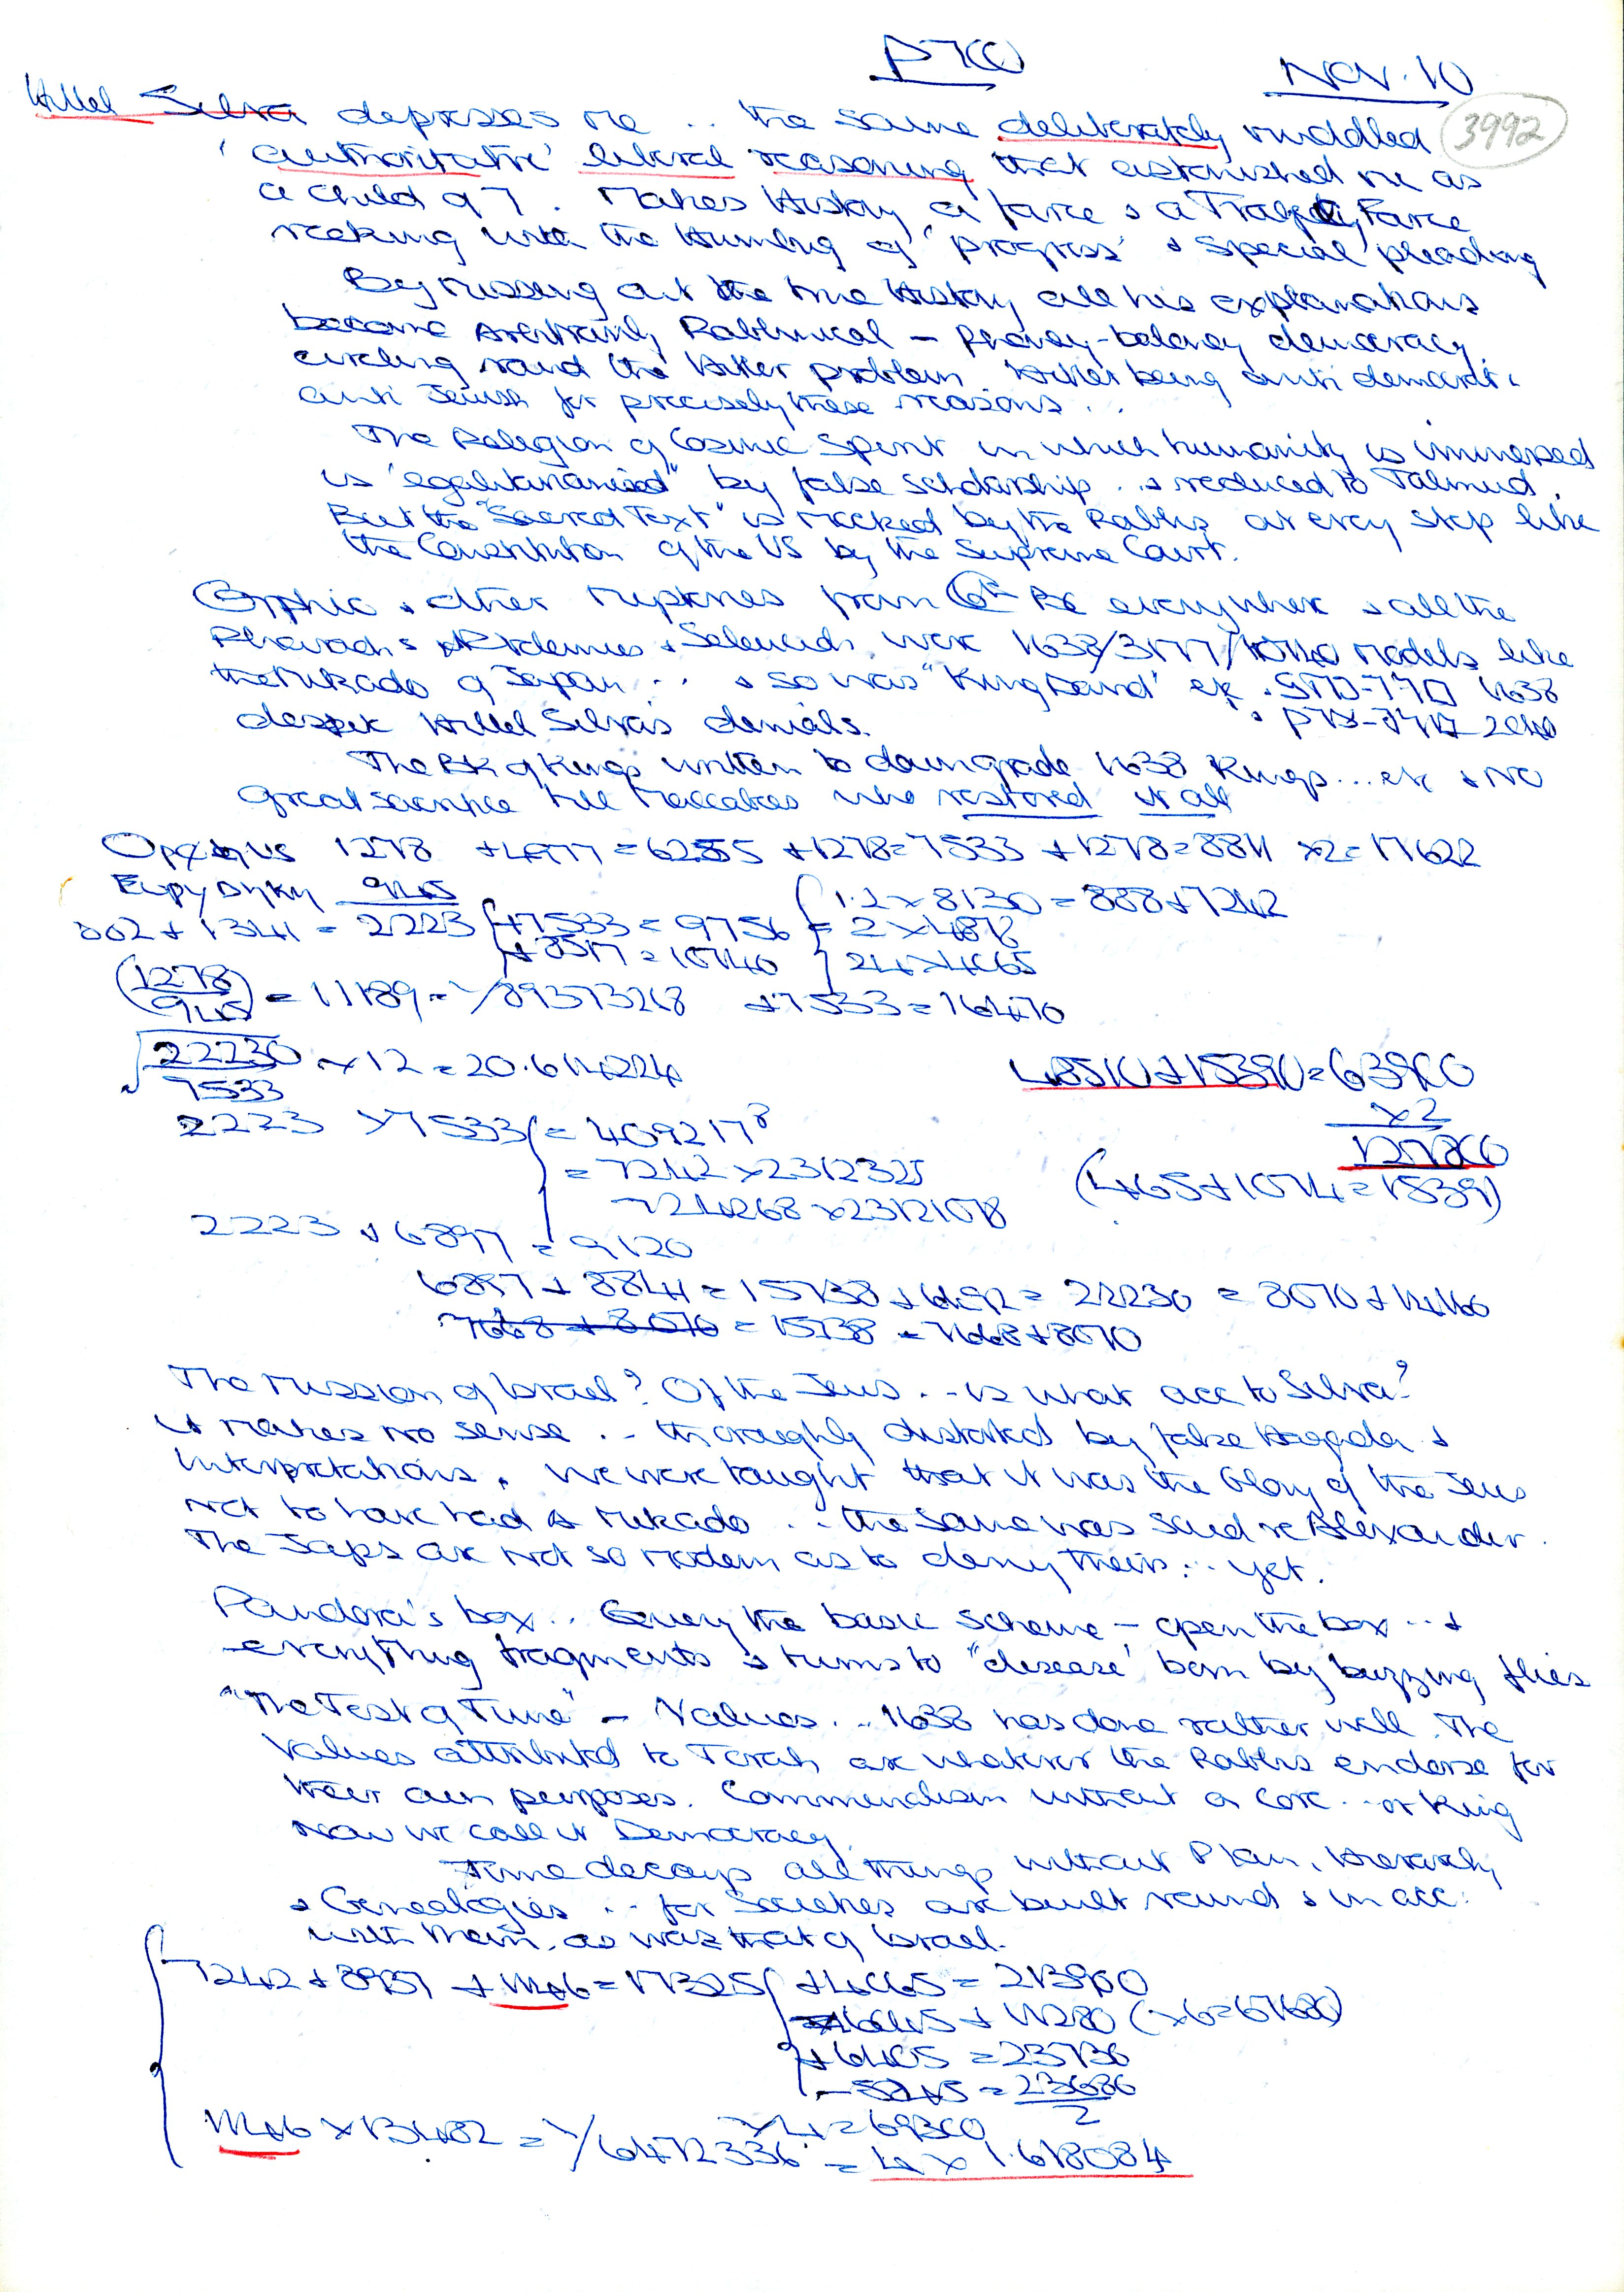 PTO
NOV. 10
3992
Hillel Silva depresses me .. the same deliberately muddled
'authoritative' liberal reasoning that astonished me as
a child of 7. Makes History a farce & a Tragedy, Farce
reeking with the Humbug of 'progress' & special pleading
By missing out the true History all his explanations
become Arbitrarily Rabbinical – phoney-baloney democracy,
circling round the Hitler problem. Hitler being anti democratic
anti Jewish for precisely these reasons ..
The Religion of Cosmic Spirit in which humanity is immersed
is 'egalitarianised" by false scholarship .. & reduced to Talmud.
But the "Sacred Text" is mocked by the Rabbis at every step like
the Constitution of the US by the Supreme Court.
Orphic & other Mysteries from 6th BC everywhere & all the
Pharaohs & Ptolemies & Seleucids were 1638/3177/ models like
the Mikado of Japan .. & so was "King David'
despite Hillel Silva's denials.
The Bk of Kings written to downgrade 1638 Kings ... etc & NO
great sacrifice till Maccabees who restored it all
1278 +4977 = 6255 +1278 = 7533 +1278 = 8811 x2 = 17622
882 + 1341 = 2223 +7533 = 9756 = 2 x 4878
1.2 x 8130 = 888 + 7242
+8517 = 10740 24 x 4065
(1278/945) = √ +7533 =
√22230/7533 x 12 = 20.614224
48510 + 15390 = 63900
x2
127800
2223 x 7533 = 4092178
= 7242 x 2312325
724268 x 2312108
(465 + 1074 = 1539)
2223 + 6897 = 9120
6897 + 8841 = 15738 + 6492 = 22230 = 8070 + 14160
7668 + 8070 = 15738 = 7668 + 8070
The Mission of Israel? Of the Jews .. is what acc to Silva?
It makes no sense .. thoroughly distorted by false Hagada &
Interpretations. We were taught that it was the Glory of the Jews
not to have had a Mikado .. the same was said re Alexander.
The Japs are not so modern as to deny theirs .. yet.
Pandora's box .. Query the basic scheme – open the box .. &
everything fragments & turns to "disease' born by buzzing flies
"The Test of Time" – Values .. 1638 has done rather well. The
values attributed to Torah are whatever the Rabbis endorse for
their own purposes. Commercialism without a core .. or King
Now we call it Democracy.
Time decays all things without Plan, Hierarchy
& Genealogies .. for Societies are built round & in acc:
with them, as was that of Israel.
7242 + 8937 + 1146 = 17325 +4065 = 21390
+ 11280 (x6 = 67680)
+6405 = 23730
x4 = 69300
1146 x 13482 = = 4 x 1.618084